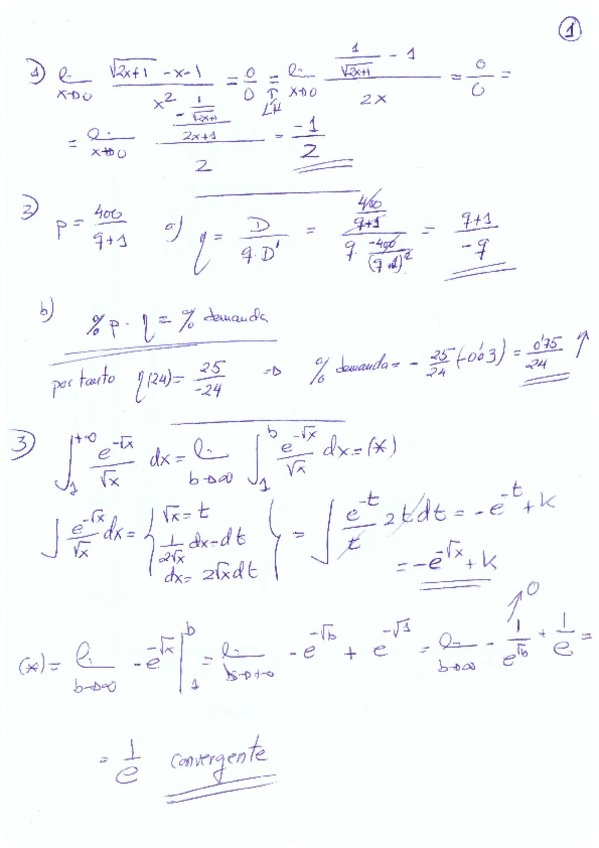 1
1) lim x→0 (√(2x+1) - x - 1)/x² = 0/0 = L'H lim x→0 (1/√(2x+1) - 1)/2x = 0/0 =
= lim x→0 (-(1/√(2x+1))/(2x+1))/2 = -1/2
2) p = 400/(q+1) a) η = D/(q·D') = (400/(q+1))/(q·(-400/(q+1)²)) = (q+1)/-q
b) % p · η = % demanda
por tanto η(24) = 25/-24 ⇒ % demanda = - 25/24 (-0'03) = 0'75/24 ↑
3) ∫₁^+∞ e^(-√x)/√x dx = lim b→∞ ∫₁^b e^(-√x)/√x dx = (*)
∫ e^(-√x)/√x dx = { √x = t
1/(2√x) dx = dt
dx = 2√x dt } = ∫ e^(-t)/t 2t dt = -e^(-t) + k
= -e^(-√x) + k
(*) = lim b→∞ -e^(-√x) |₁^b = lim b→+∞ -e^(-√b) + e^(-√1) = lim b→∞ - 1/e^(√b) ↗0 + 1/e =
= 1/e convergente